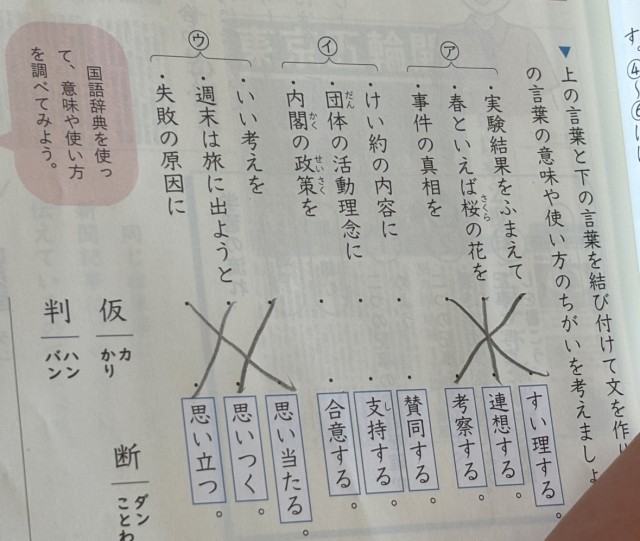 す。④〜⑥
▼上の言葉と下の言葉を結び付けて文を作り
の言葉の意味や使い方のちがいを考えましょ
㋐
・実験結果をふまえて
・春といえば桜の花を
さくら
・事件の真相を
㋑
・けい約の内容に
・団体の活動理念に
だん
・内閣の政策を
かく
せいさく
㋒
・いい考えを
・週末は旅に出ようと
・失敗の原因に
・すい理する。
・連想する。
・考察する。
・賛同する。
・支持する。
し
・合意する。
・思い当たる。
・思いつく。
・思い立つ。
国語辞典を使っ
て、意味や使い方
を調べてみよう。
仮
カ
かり
判
ハン
バン
断
ダン
ことわ